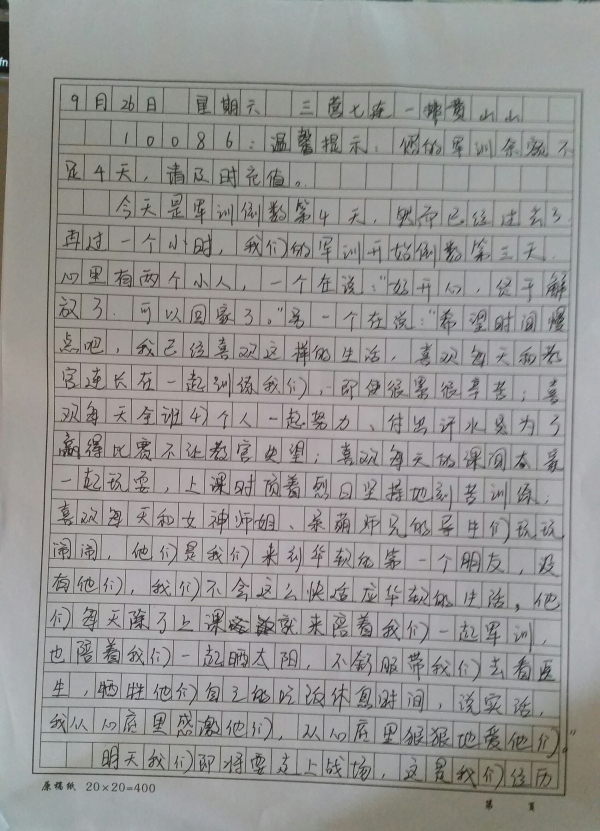 9月26日 星期六 三营七连一排黄山山
10086：温馨提示，您的军训余额不
足4天，请及时充值。
今天是军训倒数第4天，然而已经过去了
再过一个小时，我们的军训开始倒数第三天.
心里有两个小人，一个在说：“好开心，终于解
放了.可以回家了。”另一个在说：“希望时间慢
点吧，我已经喜欢这样的生活，喜欢每天和教
官连长在一起训练我们，即使很累很辛苦；喜
欢每天全班41个人一起努力、付出汗水只为了
赢得比赛不让教官失望；喜欢每天的课间在
一起玩耍，上课时顶着烈日坚持地刻苦训练；
喜欢每天和女神师姐、呆萌师兄的导生们玩玩
闹闹，他们是我们来到华软的第一个朋友，没
有他们，我们不会这么快适应华软的生活。他
们每天除了上课就来陪着我们一起军训，
也陪着我们一起晒太阳，不舒服带我们去看医
生，牺牲他们自己的吃饭休息时间，说实话，
我从心底里感激他们，从心底里狠狠地爱他们。”
明天我们即将要走上战场，这是我们经历
原稿纸 20×20=400
第 页